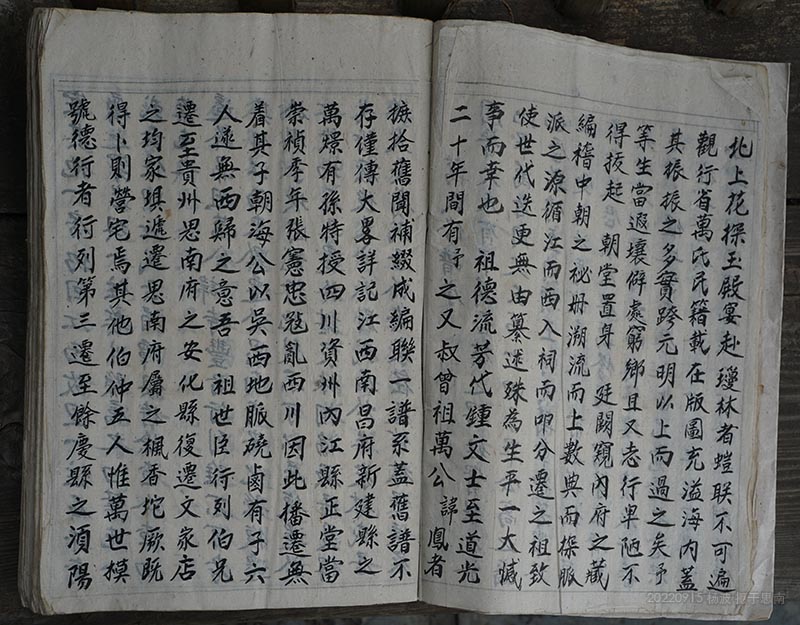 北上花探玉殿宴赴瓊林者螘聨不可遍
觀行省萬氏民籍載在版圖充溢海內蓋
其振振之多實跨元明以上而過之矣予
等生當遐壤僻處窮鄉且又志行卑陋不
得拔起 朝堂置身 廷闕窺內府之藏
編稽中朝之祕册溯流而上數典而探脈
派之源循江而西入祠而叩分遷之祖致
使世代迭更無由纂述殊為生平一大憾
事而幸也 祖德流芳代鍾文士至道光
二十年間有予之又叔曾祖萬公 諱鳳者
摭拾舊聞補綴成編聯一譜系蓋舊譜不
存僅傳大畧詳記江西南昌府新建縣之
萬燝有孫特授四川資州內江縣正堂當
崇禎季年張憲忠冦亂西川因此播遷無
着其子朝海公以吳西地脈磽鹵有子六
人遂無西歸之意吾 祖世臣行列伯兄
遷至貴州思南府之安化縣復遷文家店
之均家垻遞遷思南府屬之楓香坨厥既
得卜則營宅焉其他伯仲五人惟萬世模
號德行者行列第三遷至餘慶縣之湏陽
20220915 杨波 拍于思南